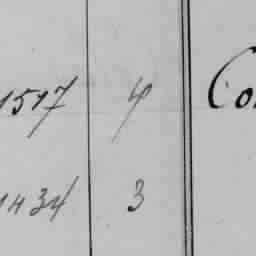 1517 4 Co
1434 3